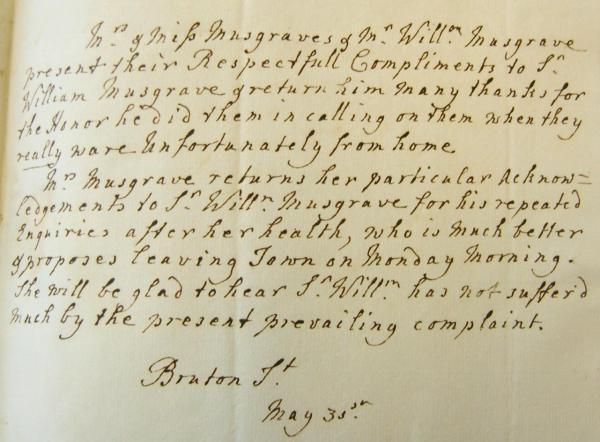 Mrs & Miss Musgraves & Mr Willm Musgrave
present their Respectfull Compliments to Sr
William Musgrave & return him many thanks for
the Honor he did them in calling on them when they
really ware Unfortunately from home
Mrs Musgrave returns her particular Acknow=
ledgements to Sr Willm Musgrave for his repeated
Enquiries after her health, who is much better
& proposes leaving Town on Monday Morning.
She will be glad to hear Sr Willm has not sufferd
much by the present prevailing complaint.
Bruton St
May